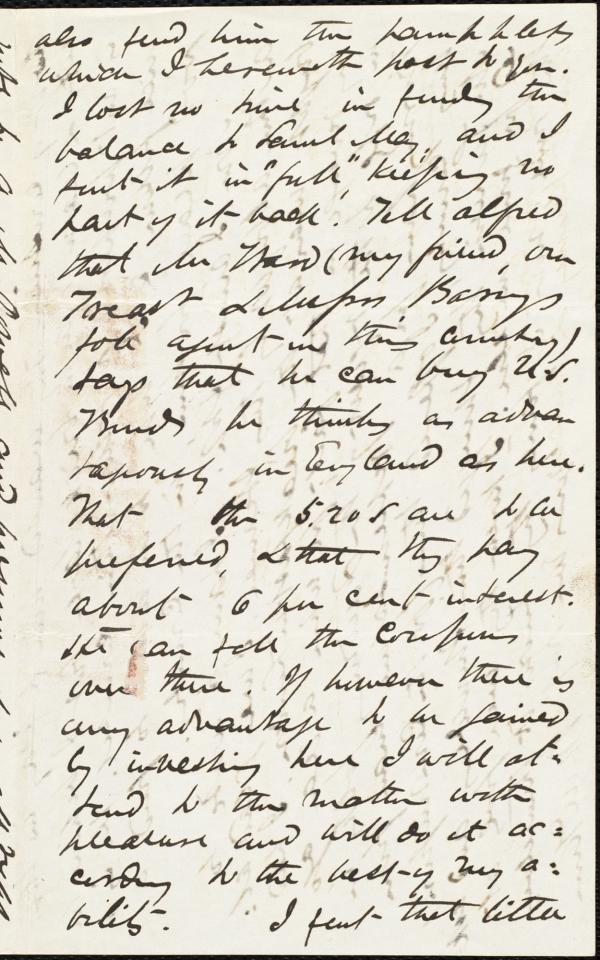 also send him the pamphlets
which I herewith post to you.
I lost no time in sending the
balance to Saml May, and I
sent it in "full," keeping no
part of it back. Tell alfred
that Mr Ward (my friend, our
Treast & Messrs Barings
sole agent in this country)
says that he can buy U.S.
Bonds he thinks as advan
tageously in England as here.
That the 5.20s are to be
preferred, & that they pay
about 6 per cent interest.
He can sell the Coupons
over there. If however there is
any advantage to be gained
by investing here I will at=
tend to the matter with
pleasure and will do it ac=
cording to the best of my a=
bility. I sent that letter